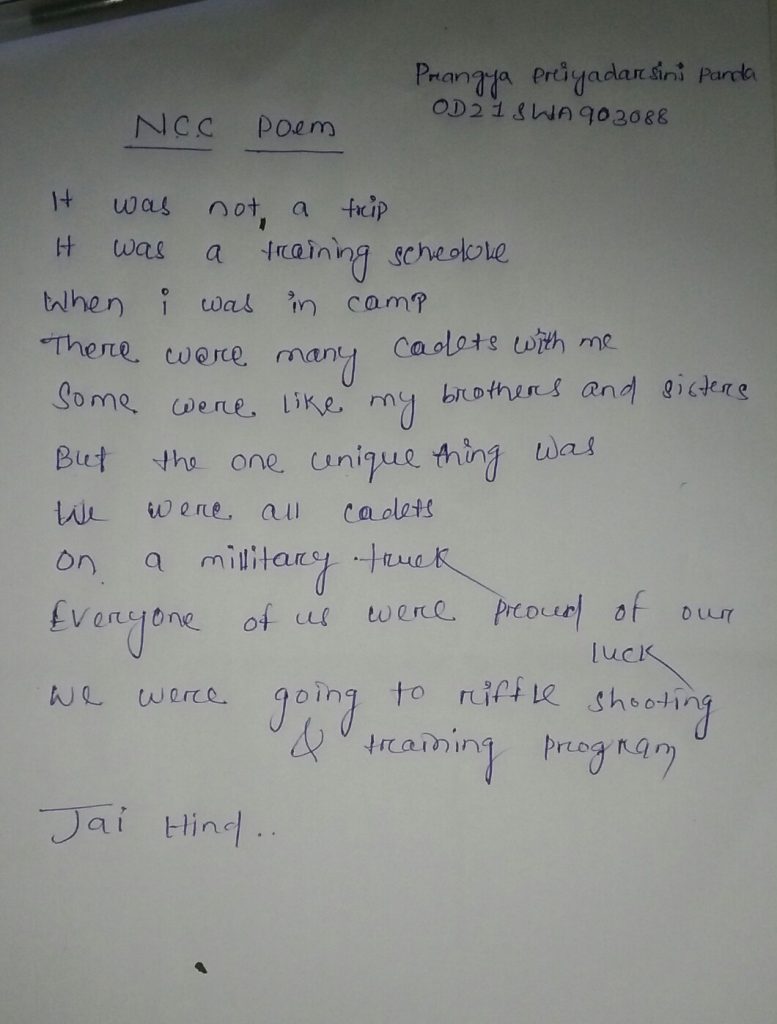 Prangya Priyadarsini Panda
OD21SWA903088
NCC Poem
It was not a trip
It was a training schedule
When i was in camp
There were many cadets with me
Some were like my brothers and sisters
But the one unique thing was
We were all cadets
On a millitary truck
Everyone of us were proud of our
luck
We were going to riffle shooting
& training program
Jai Hind..